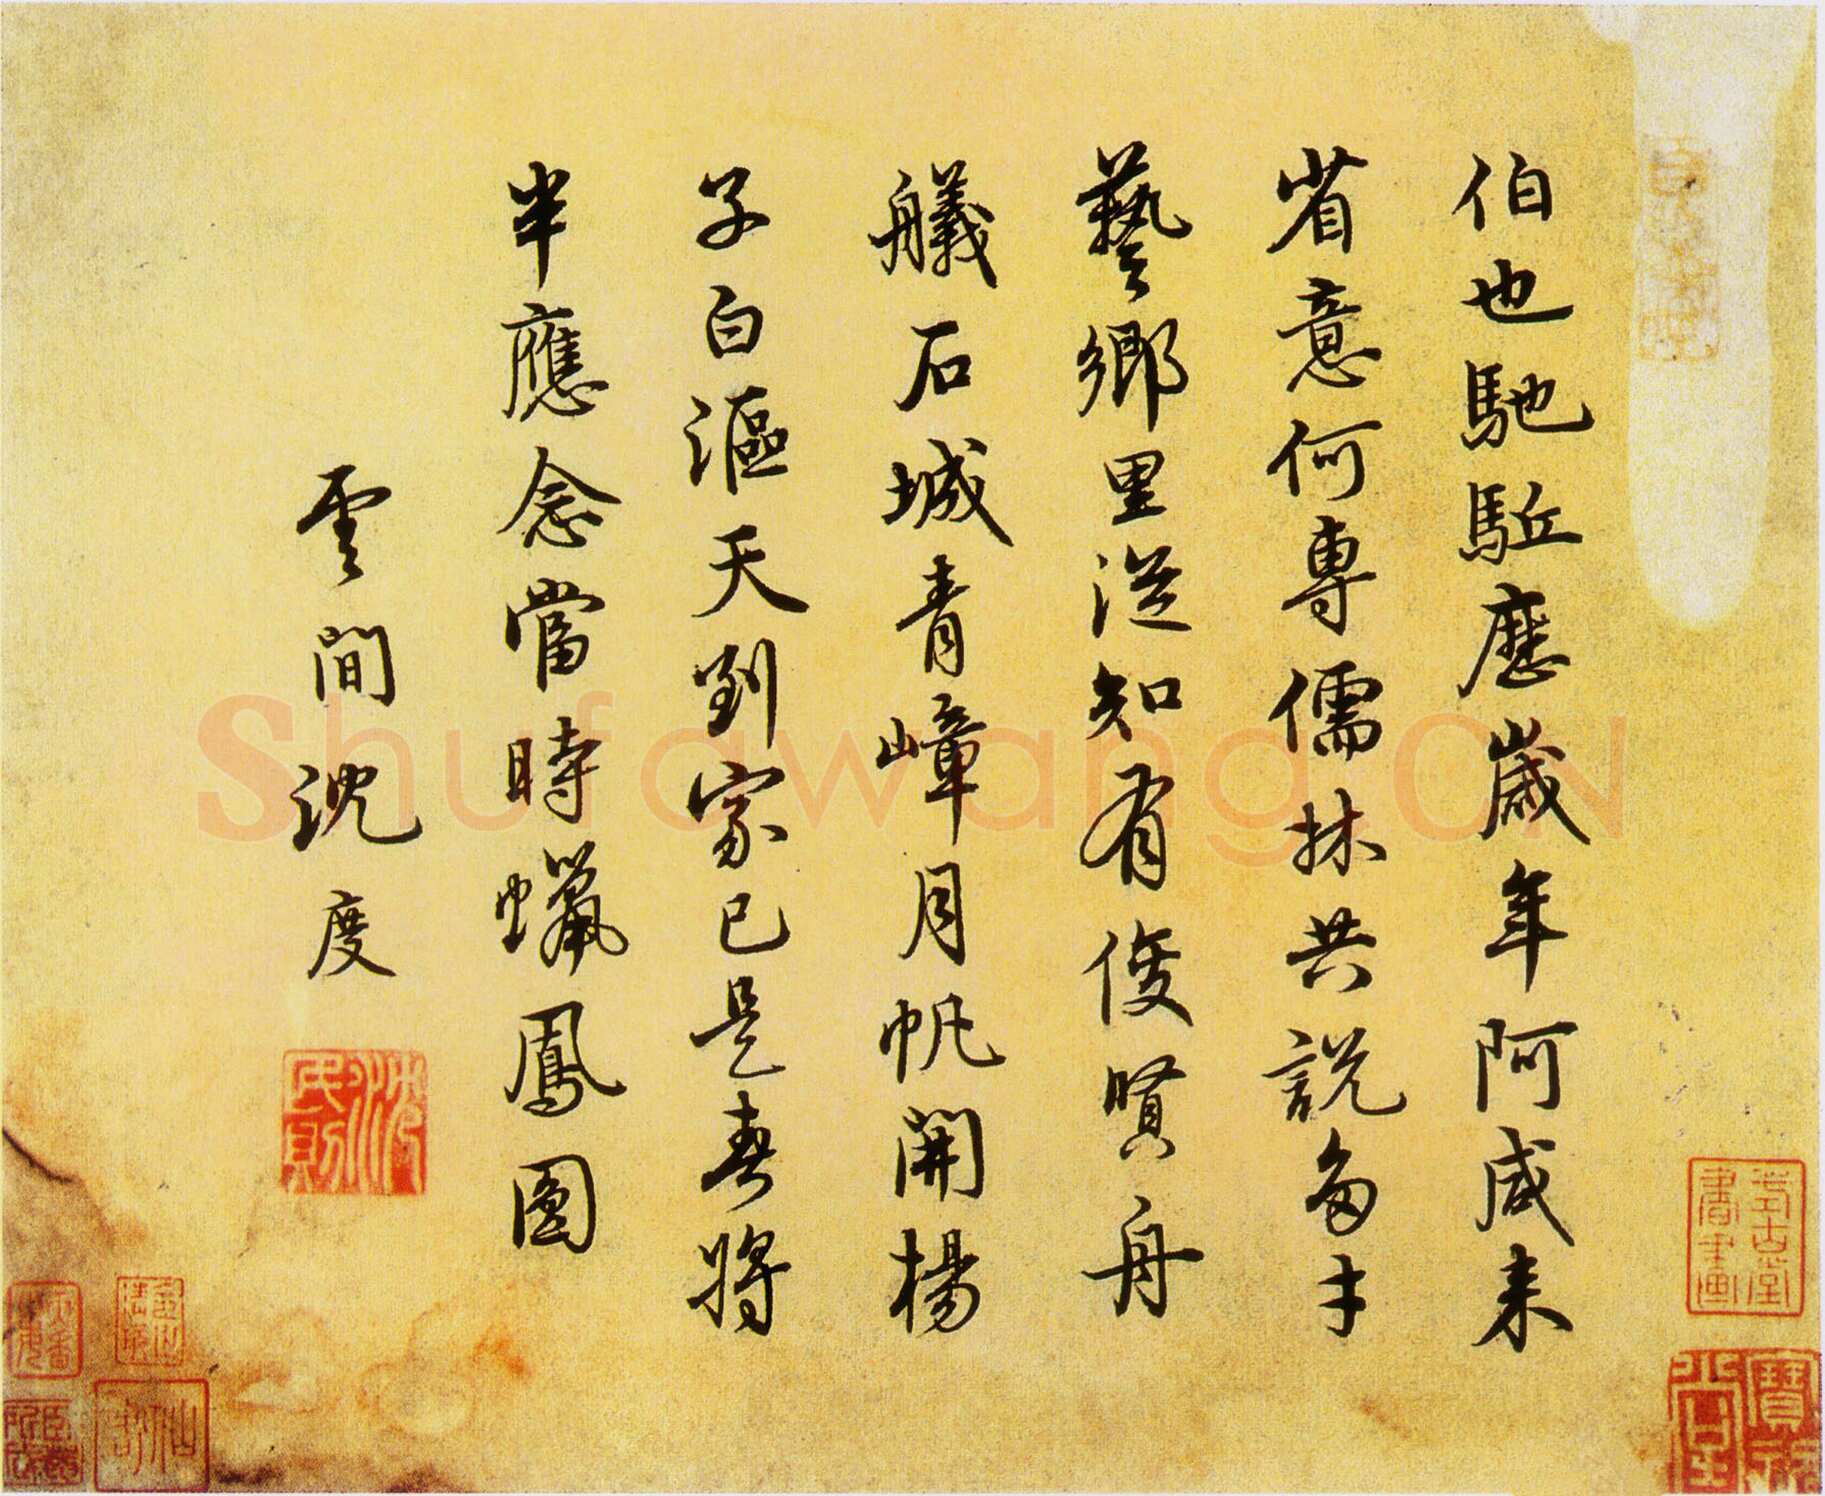 伯也馳駈歷歲年阿咸来
省意何専儒林共說多才
藝鄉里從知有俊賢舟
艤石城青嶂月帆開楊
子白漚天到家已是春將
半應念當時蠟鳳圓
雲間沈度
沈氏民則
書畫
Shufawang.CN